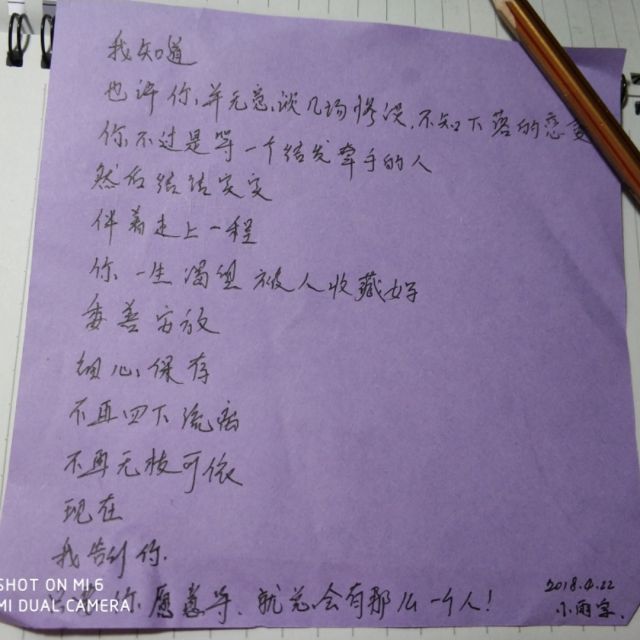 我知道
也许你,并无意谈几场,不知下落的恋爱
你不过是等一个结发牵手的人
然后结结实实
伴着走上一程
你一生渴望被人收藏好
妥善安放
细心保存
不再四下流离
不再无枝可依
现在
我告诉你.
只要你愿意等,就总会有那么一个人!
2018.4.22
小雨字
SHOT ON MI 6
MI DUAL CAMERA